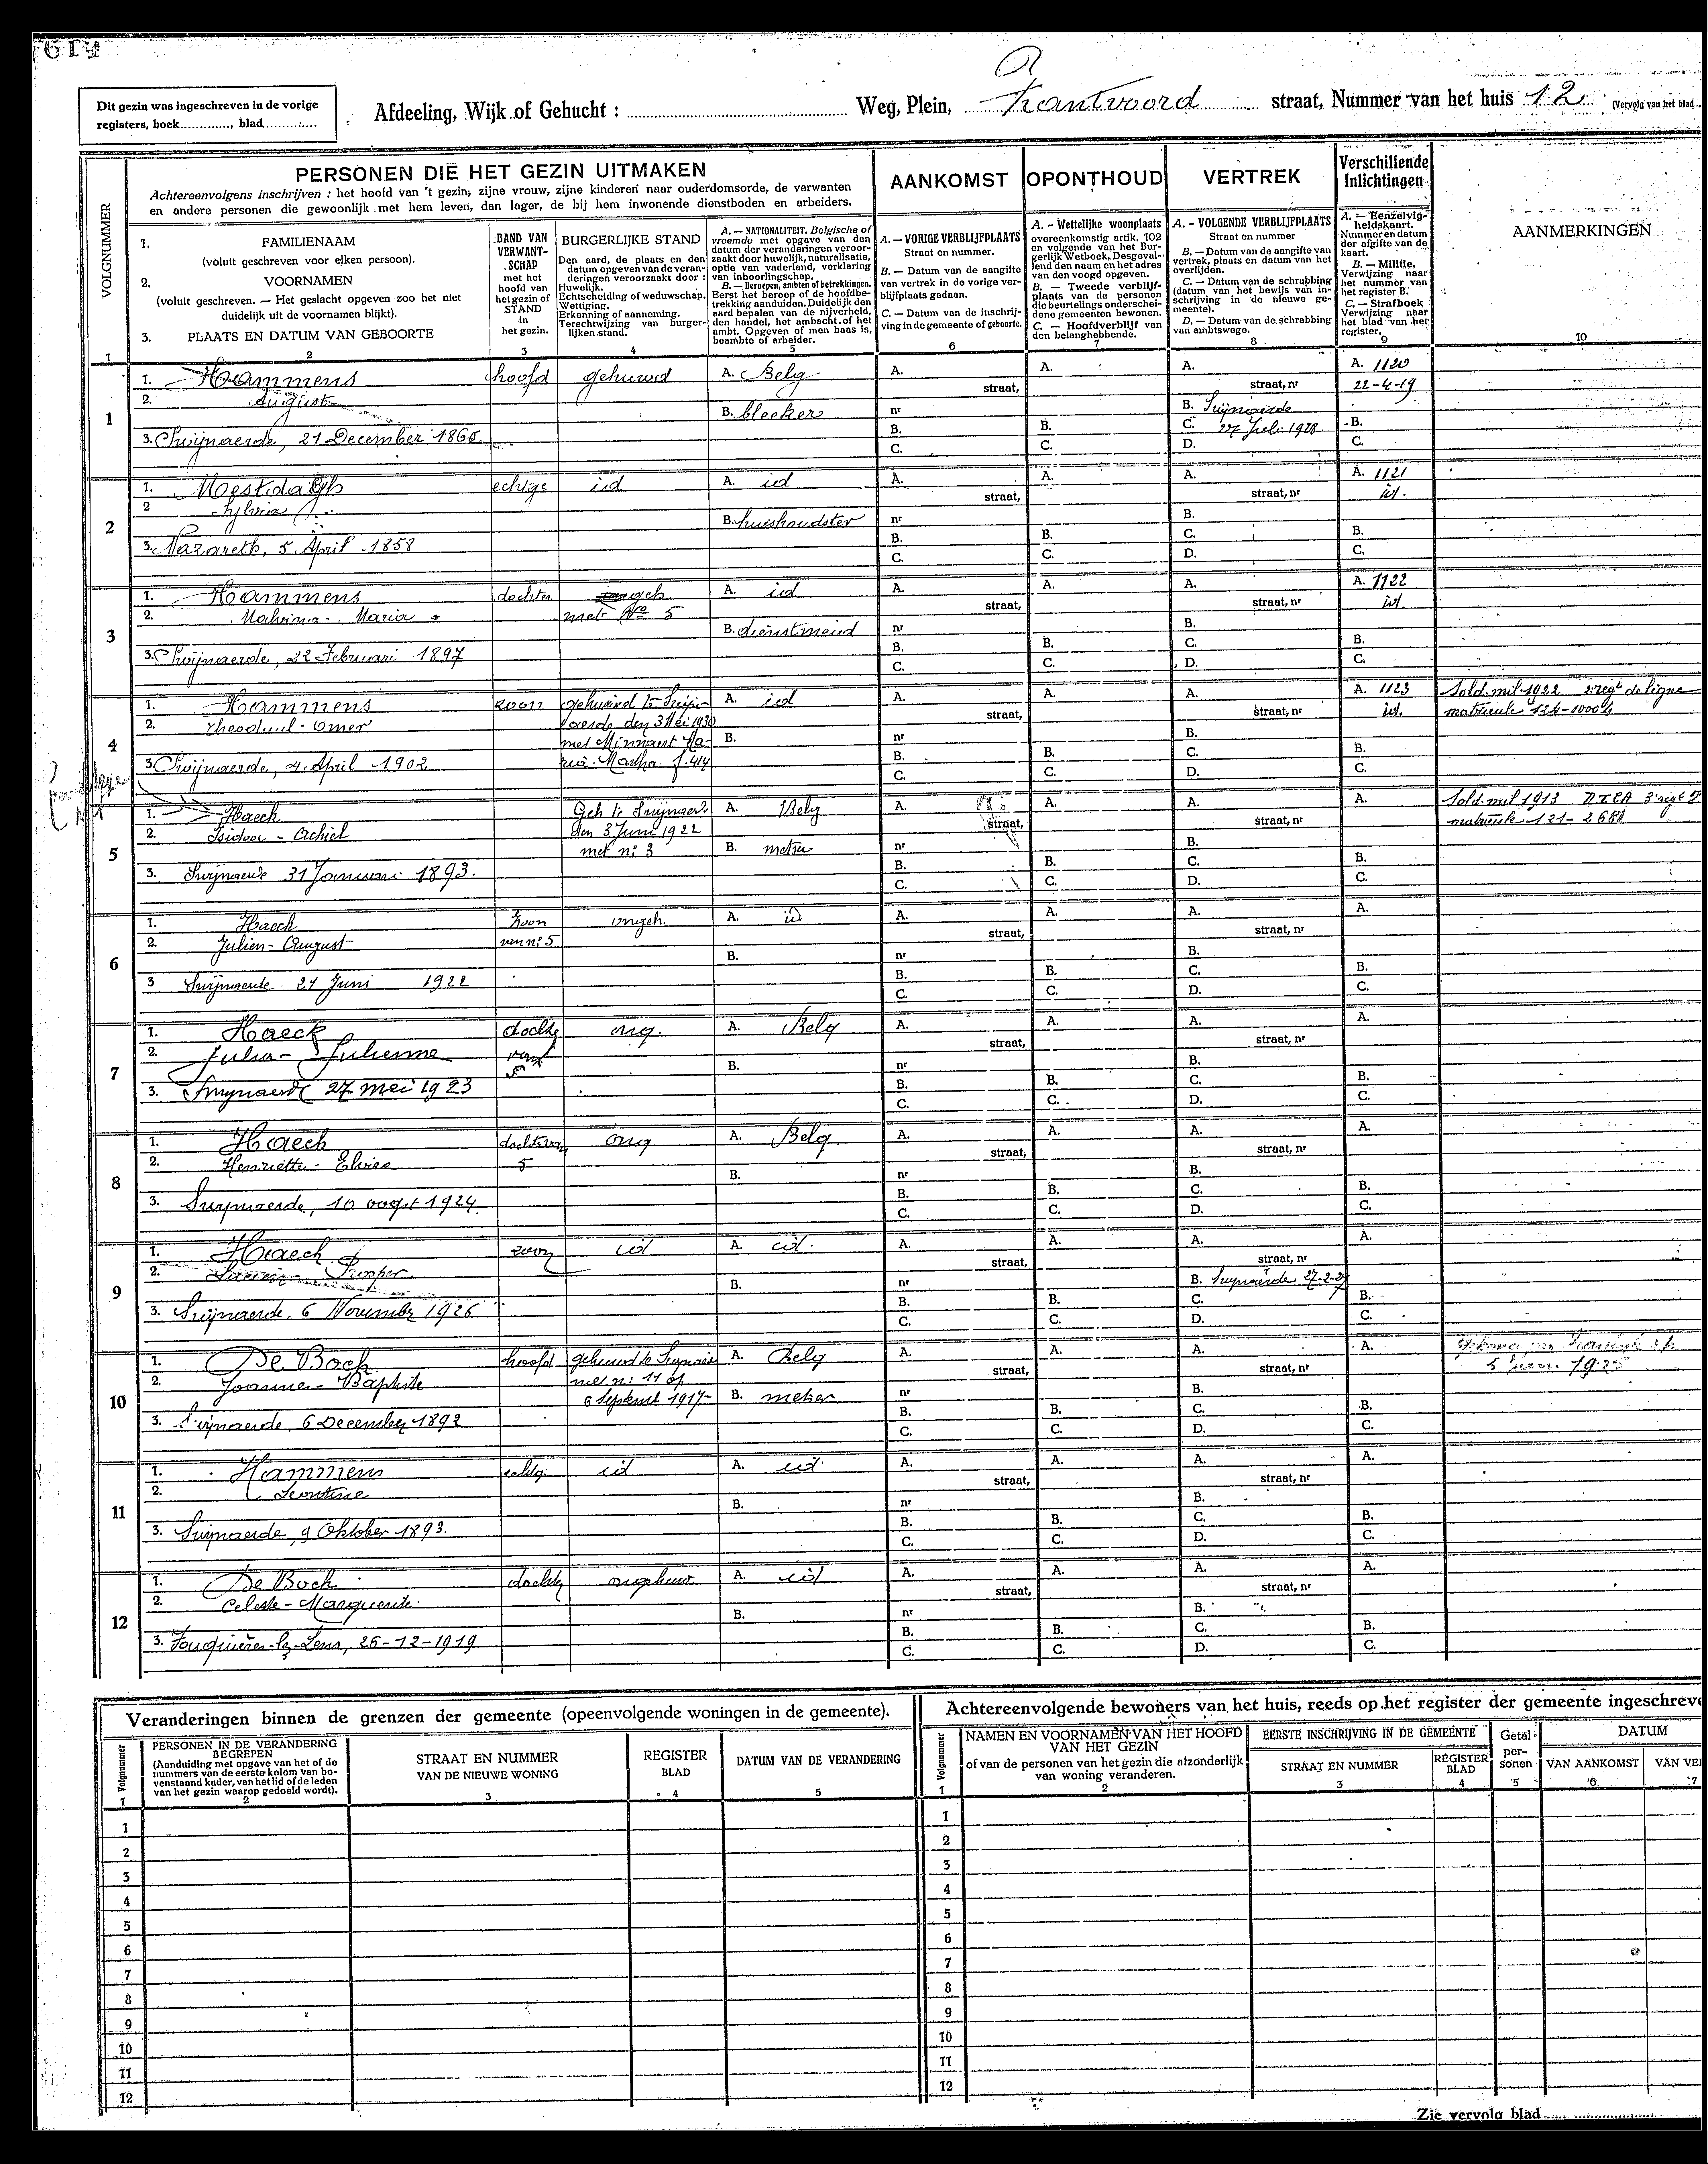 Dit gezin was ingeschreven in de vorige
registers, boek............., blad.............
Afdeeling, Wijk of Gehucht : ............ Weg, Plein, Zantvoord straat, Nummer van het huis 12 (Vervolg van het blad
VOLGNUMMER
PERSONEN DIE HET GEZIN UITMAKEN
Achtereenvolgens inschrijven : het hoofd van 't gezin, zijne vrouw, zijne kinderen naar ouderdomsorde, de verwanten
en andere personen die gewoonlijk met hem leven, dan lager, de bij hem inwonende dienstboden en arbeiders.
AANKOMST
OPONTHOUD
VERTREK
Verschillende
Inlichtingen
AANMERKINGEN
1. FAMILIENAAM
(voluit geschreven voor elken persoon).
2. VOORNAMEN
(voluit geschreven. — Het geslacht opgeven zoo het niet
duidelijk uit de voornamen blijkt).
3. PLAATS EN DATUM VAN GEBOORTE
BAND VAN
VERWANT-
SCHAP
met het
hoofd van
het gezin of
STAND
in
het gezin.
BURGERLIJKE STAND
Den aard, de plaats en den
datum opgeven van de veran-
deringen veroorzaakt door :
Huwelijk.
Echtscheiding of weduwschap.
Wettiging.
Erkenning of aanneming.
Terechtwijzing van burger-
lijken stand.
A. — NATIONALITEIT. Belgische of
vreemde met opgave van den
datum der veranderingen veroor-
zaakt door huwelijk, naturalisatie,
optie van vaderland, verklaring
van inboorlingschap.
B. — Beroepen, ambten of betrekkingen.
Eerst het beroep of de hoofdbe-
trekking aanduiden. Duidelijk den
aard bepalen van de nijverheid,
den handel, het ambacht of het
ambt. Opgeven of men baas is,
beambte of arbeider.
A. — VORIGE VERBLIJFPLAATS
Straat en nummer.
B. — Datum van de aangifte
van vertrek in de vorige ver-
blijfplaats gedaan.
C. — Datum van de inschrij-
ving in de gemeente of geboorte.
A. - Wettelijke woonplaats
overeenkomstig artik. 102
en volgende van het Bur-
gerlijk Wetboek. Desgeval-
lend den naam en het adres
van den voogd opgeven.
B. — Tweede verblijf-
plaats van de personen
die beurtelings onderschei-
dene gemeenten bewonen.
C. — Hoofdverblijf van
den belanghebbende.
A. - VOLGENDE VERBLIJFPLAATS
Straat en nummer
B. — Datum van de aangifte van
vertrek, plaats en datum van het
overlijden.
C. — Datum van de schrabbing
(datum van het bewijs van in-
schrijving in de nieuwe ge-
meente).
D. — Datum van de schrabbing
van ambtswege.
A. — Eenzelvig-
heidskaart.
Nummer en datum
der afgifte van de
kaart.
B. — Militie.
Verwijzing naar
het nummer van
het register B.
C. — Strafboek
Verwijzing naar
het blad van het
register.
1 2 3 4 5 6 7 8 9 10
1
1. Hammens hoofd gehuwd A. Belg A. straat, A. A. straat, nr A. 1120
2. August B. bleeker nr B. Swijnaerde 22-4-19
3. Swijnaerde, 21 December 1860 B. C. B. C. C. 27 Juli 1928 D. B. C.
2
1. Mestdagh echtge id A. id A. straat, A. A. straat, nr A. 1121
2 Sylvia B. huishoudster nr B. id.
3. Nazareth, 5 April 1858 B. C. B. C. C. D. B. C.
3
1. Hammens dochter geh. A. id A. straat, A. A. straat, nr A. 1122
2. Malvina - Maria met No 5 B. dienstmeid nr B. id.
3. Swijnaerde, 22 Februari 1897 B. C. B. C. C. D. B. C.
4
1. Hammens zoon gehuwd te Swijn- A. id A. straat, A. A. straat, nr A. 1123 Sold. mil. 1922 2 regt de ligne
2. Theoduul - Omer aerde den 3 Mei 1930 id. matricule 124-10004
met Minnaert Ma- B. nr B.
3. Swijnaerde, 4 April 1902 ria - Martha f. 414 B. C. B. C. C. D. B. C.
5
1. Haeck Geh te Swijnaer. A. Belg A. straat, A. A. straat, nr A. Sold. mil 1913 D.T.C.A 3 regt
2. Isidoor - Achiel den 3 Juni 1922 matricule 121-2681
met n: 3 B. metser nr B.
3. Swijnaerde 31 Januari 1893. B. C. B. C. C. D. B. C.
6
1. Haeck zoon ongeh. A. id A. straat, A. A. straat, nr A.
2. Julien - August van n: 5 B. nr B.
3 Swijnaerde 21 Juni 1922 B. C. B. C. C. D. B. C.
7
1. Haeck dochter ong. A. Belg A. straat, A. A. straat, nr A.
2. Julia - Julienne van 5 B. nr B.
3. Swijnaerde 27 mei 1923 B. C. B. C. C. D. B. C.
8
1. Haeck dochter van ong A. Belg. A. straat, A. A. straat, nr A.
2. Henriette - Elvire 5 B. nr B.
3. Swijnaerde, 10 oogst 1924. B. C. B. C. C. D. B. C.
9
1. Haeck zoon id A. id. A. straat, A. A. straat, nr A.
2. Lucien - Prosper. B. nr B. Swijnaerde 27-2-27
3. Swijnaerde, 6 November 1926 B. C. B. C. C. D. B. C.
10
1. De Bock hoofd gehuwd te Swijnaer A. Belg A. straat, A. A. straat, nr A.
2. Joannes - Baptiste met n: 11 op 1925
6 September 1917 - B. metser nr B.
3. Swijnaerde, 6 December 1892 B. C. B. C. C. D. B. C.
11
1. Hammens echtg. id A. id A. straat, A. A. straat, nr A.
2. Leontine B. nr B.
3. Swijnaerde, 9 Oktober 1893. B. C. B. C. C. D. B. C.
12
1. De Bock dochter ongehuw. A. id A. straat, A. A. straat, nr A.
2. Celeste - Marguerite. B. nr B.
3. Fouquières-lez-Lens, 26-12-1919 B. C. B. C. C. D. B. C.
Veranderingen binnen de grenzen der gemeente (opeenvolgende woningen in de gemeente).
Volgnummer
PERSONEN IN DE VERANDERING
BEGREPEN
(Aanduiding met opgave van het of de
nummers van de eerste kolom van bo-
venstaand kader, van het lid of de leden
van het gezin waarop gedoeld wordt).
STRAAT EN NUMMER
VAN DE NIEUWE WONING
REGISTER
BLAD
DATUM VAN DE VERANDERING
1 2 3 4 5
1
2
3
4
5
6
7
8
9
10
11
12
Achtereenvolgende bewoners van het huis, reeds op het register der gemeente ingeschreve
Volgnummer
NAMEN EN VOORNAMEN VAN HET HOOFD
VAN HET GEZIN
of van de personen van het gezin die afzonderlijk
van woning veranderen.
EERSTE INSCHRIJVING IN DE GEMEENTE
STRAAT EN NUMMER
REGISTER
BLAD
Getal
per-
sonen
DATUM
VAN AANKOMST
VAN VE
1 2 3 4 5 6 7
1
2
3
4
5
6
7
8
9
10
11
12
Zie vervolg blad